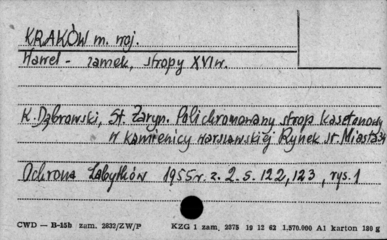 KRAKÓW m. woj.
Wawel - zamek, stropy XVI w.
K. Dąbrowski, St. Żaryn. Polichromowany strop kasetonowy
w kamienicy warszawskiej Rynek St. Miasta
Ochrona Zabytków 1955 r. z. 2. s. 122, 123, rys. 1
CWD — B-15b zam. 2832/ZW/P KZG 1 zam. 2075 19 12 62 1.570.000 A1 karton 180 g